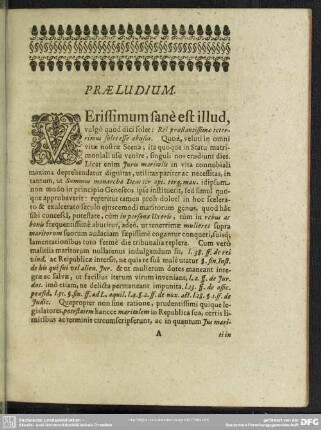 PRÆLUDIUM.
VErissimum sanè est illud,
vulgò quod dici solet: Rei præstantissimæ teter-
rimus solet esse abusus. Quod, veluti in omni
vitæ nostræ Scena, ita quoque in Statu matri-
moniali usu venire, singuli nos erudiunt dies.
Licet enim Juris maritalis in vita connubiali
maxima deprehendatur dignitas, utilitas pariter ac necessitas, in
tantum, ut Summus monarcha Deus ter opt. terq. max. id ipsum
non modò in principio Geneseos ipse instituerit, sed simul quo-
que approbaverit: reperitur tamen proh dolor! in hoc scelero-
so & exulcerato seculo ejuscemodi maritorum genus, quod hâc
sibi concessâ, potestate, cùm in personas Uxoris, tùm in rebus ac
bonis frequentissimè abutitur, adeò, ut tenerrimæ mulieres supra
maritorum suorum audaciam sæpissimè cogantur conqueri, suisq;
lamentationibus toto fermè die tribunalia replere. Cum verò
malitiis maritorum nullatenus indulgendum sit, l. 38. ff. de rei
vind. ac Reipublicæ intersit, ne quis re suâ malè utatur §. fin. Inst.
de his qui sui vel alien. Jur. & ut mulierum dotes maneant inte-
græ ac salvæ, ut facilius iterum virum inveniant, l. 2. ff. de Jur.
dot. imò etiam, ne delicta permaneant impunita, l. 13. ff. de offic.
præsid. Quapropter non sine ratione, prudentissimi quique le-
gislatores, potestatem hancce maritalem in Republica sua, certis li-
mitibus ac terminis circumscripserunt, ac in quantum Jus mari-
A
ti in